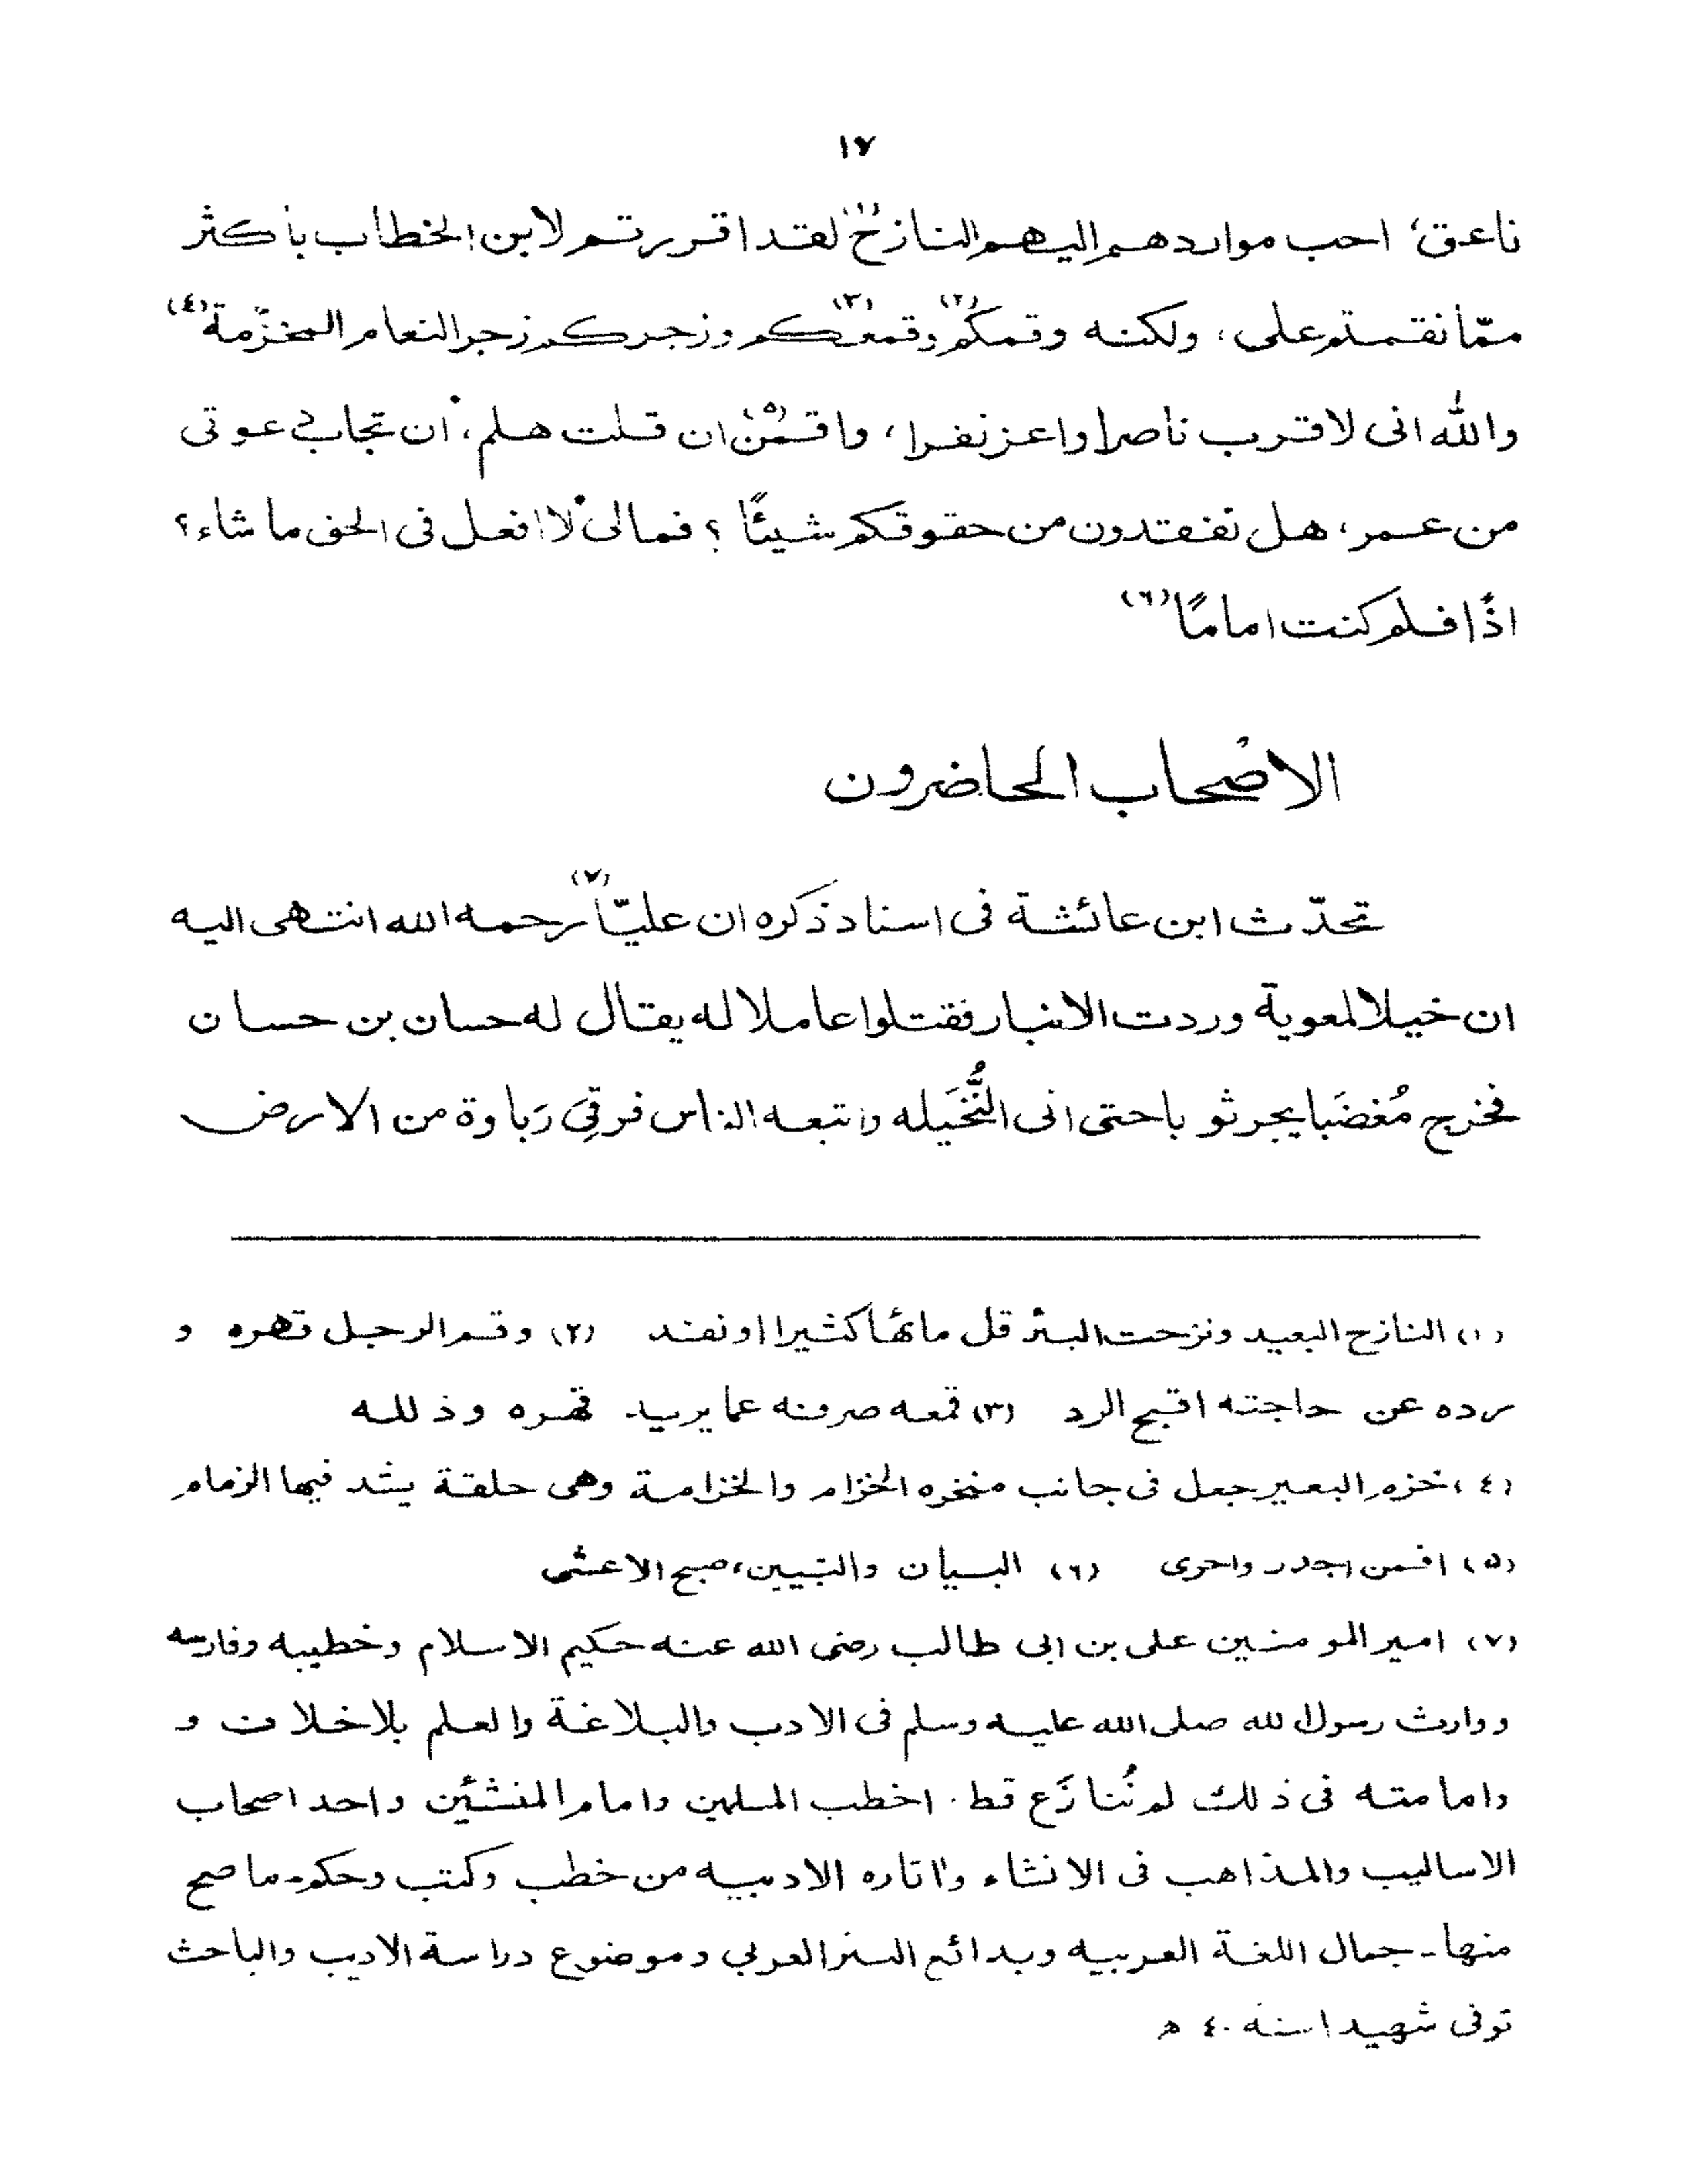 ١٧
ناعق، احب مواردهم اليهم النازح(١) لقد اقررتم لابن الخطاب بأكثر
ممّا نقمتم على، ولكنه وقمكم(٢) وقمعكم(٣) وزجركم زجر النعام المخزّمة(٤)
والله انى لاقرب ناصرا واعز نفرا، واقمن(٥) ان قلت هلم، ان تجاب دعوتى
من عمر، هل تفقدون من حقوقكم شيئًا ؟ فمالى لا افعل فى الحق ما شاء؟
اذًا فلم كنت امامًا(٦)
الاصحاب الحاضرون
تحدّث ابن عائشة فى اسناد ذكره ان عليّا(٧) رحمه الله انتهى اليه
ان خيلا لمعوية وردت الانبار فقتلوا عاملا له يقال له حسان بن حسان
فخرج مُغضَبا يجر ثوباحتى اتى النُّخَيله واتبعه الناس فرقِىَ رَباوة من الارض
(١) النازح البعيد ونزحت البئر قل مائها كثيرا او نفند (٢) وقم الرجل قهره و
رده عن حاجته اقبح الرد (٣) قمعه صرفنه عما يريد قهره وذلله
(٤) خزم البعير جعل فى جانب منخره الخزام والخزامة وهى حلقة يشد فيها الزمام
(٥) اقمن اجدر واحرى (٦) البيان والتبيين، صبح الاعشى
(٧) امير المومنين على بن ابى طالب رضى الله عنه حكيم الاسلام وخطيبه وفارسه
ووارث رسول لله صلى الله عليه وسلم فى الادب والبلاغة والعلم بلاخلاف و
وامامته فى ذلك لم نُنازَع قط. اخطب المسلمين وامام المنشئين واحد اصحاب
الاساليب والمذاهب فى الانشاء واثاره الادبيه من خطب وكتب وحكم-ما صح
منها-جمال اللغة العربيه وبدائع النثر العربي وموضوع دراسة الاديب والباحث
توفى شهيدا سنه ٤٠ ه